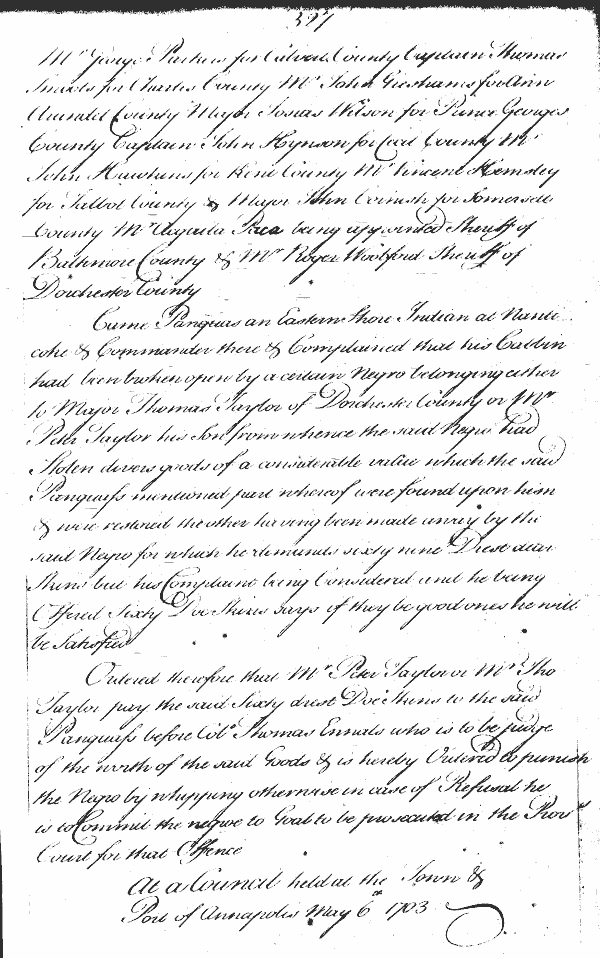 397
Mr George Parkers for Calvert County Captain Thomas
Smoots for Charles County Mr John Greshams for Ann
Arundel County Major Josias Wilson for Prince Georges
County Captain John Hynson for Cecil County Mr
John Hawkins for Kent County Mr Vincent Hemsley
for Talbot County & Major John Cornish for Somersett
County Mr Aquila Paca being appointed Sheriff of
Baltimore County & Mr Roger Woolford Sheriff of
Dorchester County
Came Panquas an Eastern Shore Indian at Nanti
coke & Commander there & Complained that his Cabbin
had been broken open by a certain Negro belonging either
to Major Thomas Taylor of Dorchester County or Mr
Peter Taylor his Son from whence the said Negro had
Stolen divers goods of a considerable value which the said
Panquass mentioned part whereof were found upon him
& were restored the other having been made away by the
said Negro for which he demands sixty nine Drest deer
Skins but his Complaint being Considered and he being
Offered Sixty Doe Skins says if they be good ones he will
be Satisfied
Ordered therefore that Mr Peter Taylor or Mr Tho
Taylor pay the said Sixty drest Doe Skins to the said
Panquass before Colo Thomas Ennals who is to be judge
of the worth of the said Goods & is hereby Ordered to punish
the Negro by whipping otherwise in case of Refusal he
is to Commit the negroe to Goal to be prosecuted in the Provll
Court for that Offence
At a Council held at the Town &
Port of Annapolis May 6th 1703